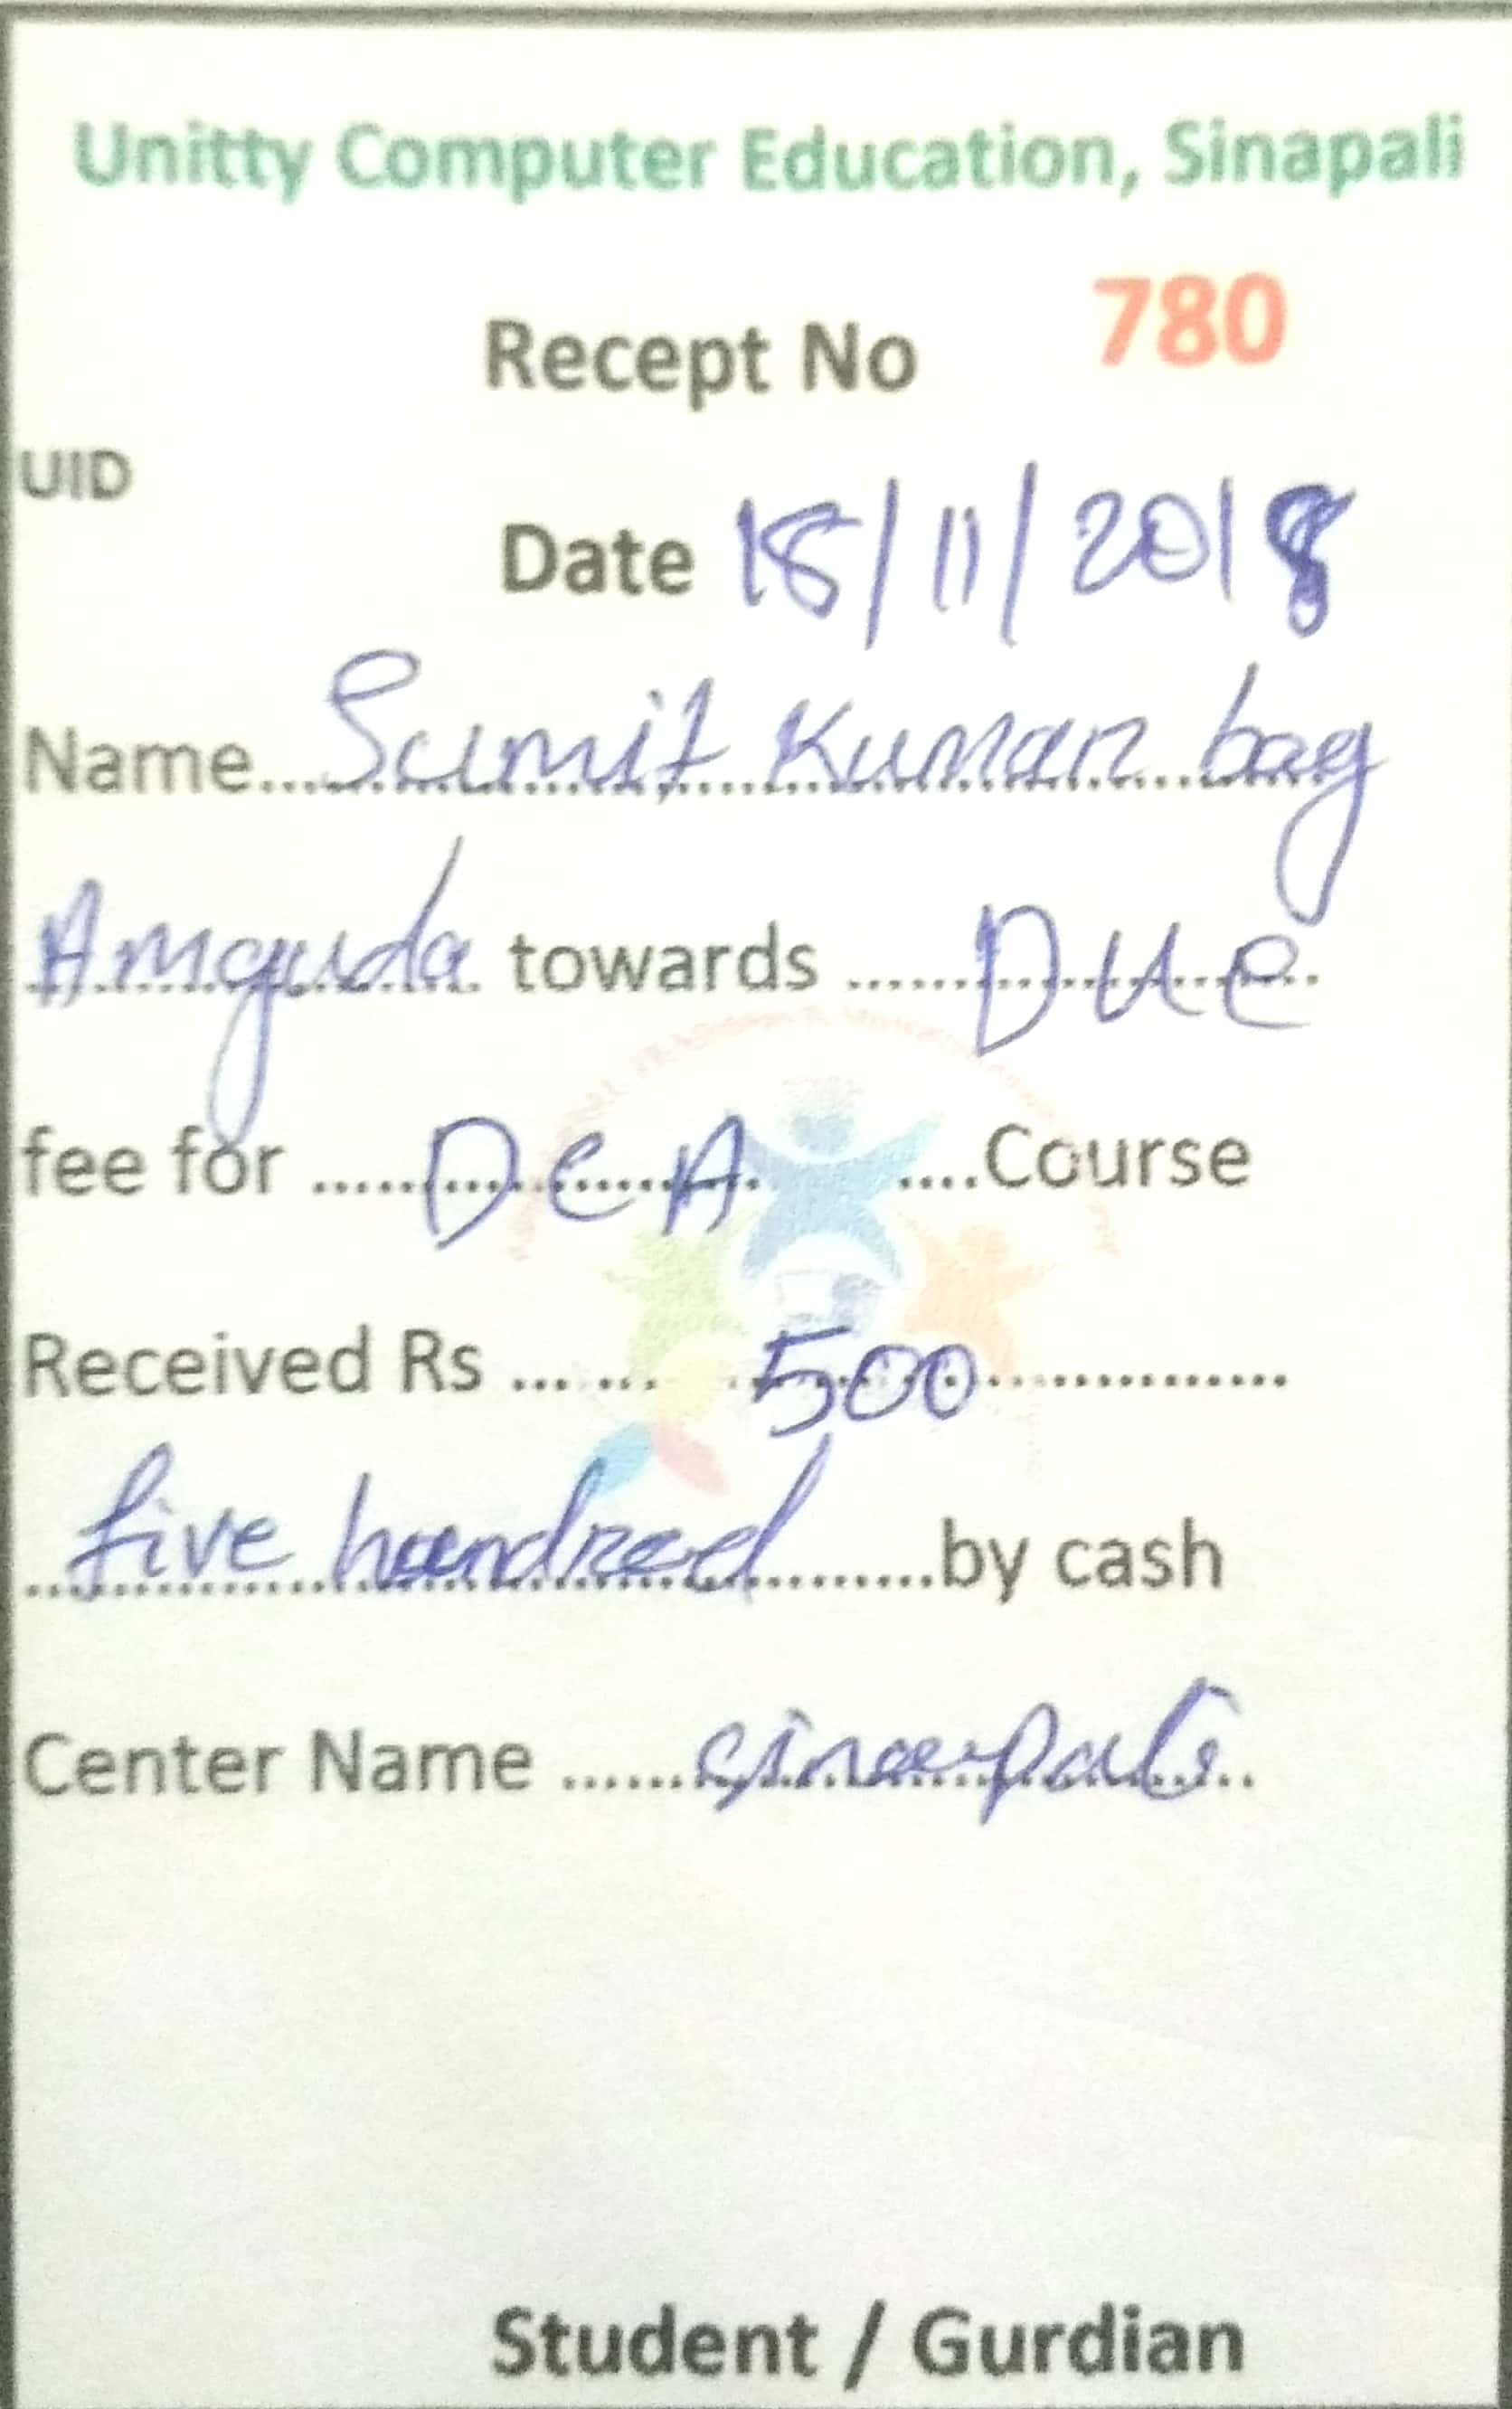 Unitty Computer Education, Sinapali
Recept No 780
UID
Date 18/11/2018
Name....Sumit Kumar bag
Amguda towards ....... Due
fee for ...... DCA ....Course
Received Rs ... ... 500 ...............
five hundred .......by cash
Center Name ......sinapali..
Student / Gurdian